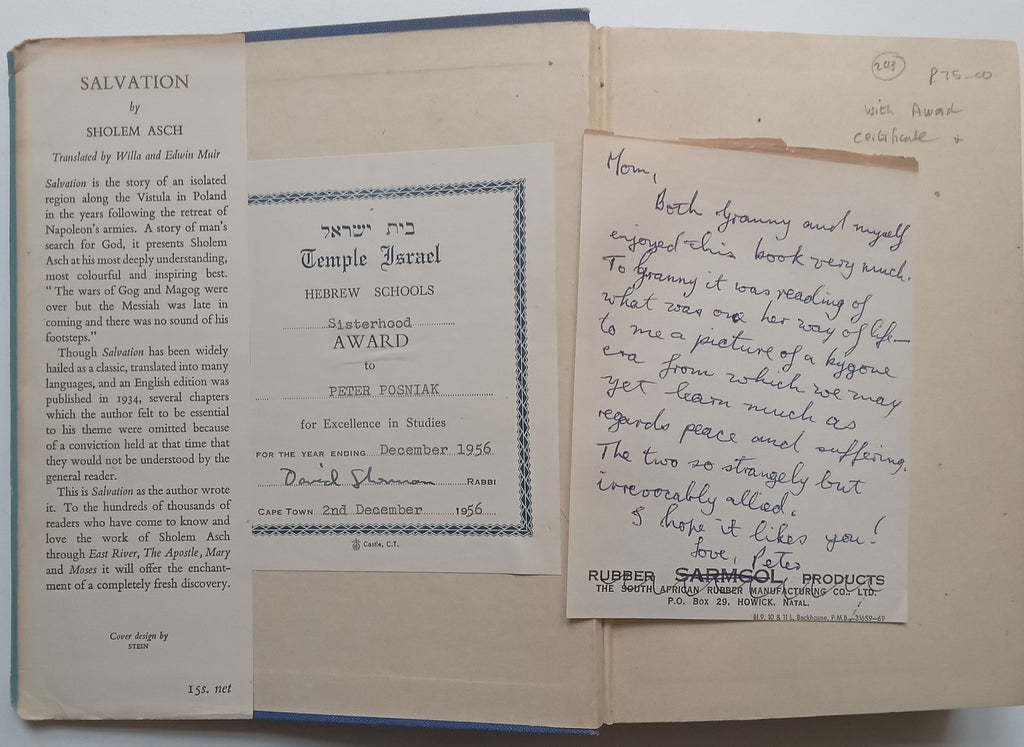 SALVATION
by
SHOLEM ASCH
Translated by Willa and Edwin Muir
Salvation is the story of an isolated
region along the Vistula in Poland
in the years following the retreat of
Napoleon's armies. A story of man's
search for God, it presents Sholem
Asch at his most deeply understanding,
most colourful and inspiring best.
"The wars of Gog and Magog were
over but the Messiah was late in
coming and there was no sound of his
footsteps."
Though Salvation has been widely
hailed as a classic, translated into many
languages, and an English edition was
published in 1934, several chapters
which the author felt to be essential
to his theme were omitted because
of a conviction held at that time that
they would not be understood by the
general reader.
This is Salvation as the author wrote
it. To the hundreds of thousands of
readers who have come to know and
love the work of Sholem Asch
through East River, The Apostle, Mary
and Moses it will offer the enchant-
ment of a completely fresh discovery.
Cover design by
STEIN
15s. net
בית ישראל
Temple Israel
HEBREW SCHOOLS
Sisterhood
AWARD
to
PETER POSNIAK
for Excellence in Studies
FOR THE YEAR ENDING December 1956
David Sherman RABBI
CAPE TOWN 2nd December 1956
Castle, C.T.
R75-00
with Award
certificate +
Mom,
Both Granny and myself
enjoyed this book very much.
To Granny it was reading of
what was once her way of life—
to me a picture of a bygone
era from which we may
yet learn much as
regards peace and suffering.
The two so strangely but
irrevocably allied.
I hope it likes you!
Love, Peter
RUBBER SARMCOL PRODUCTS
THE SOUTH AFRICAN RUBBER MANUFACTURING CO. LTD.
P.O. Box 29, HOWICK, NATAL.